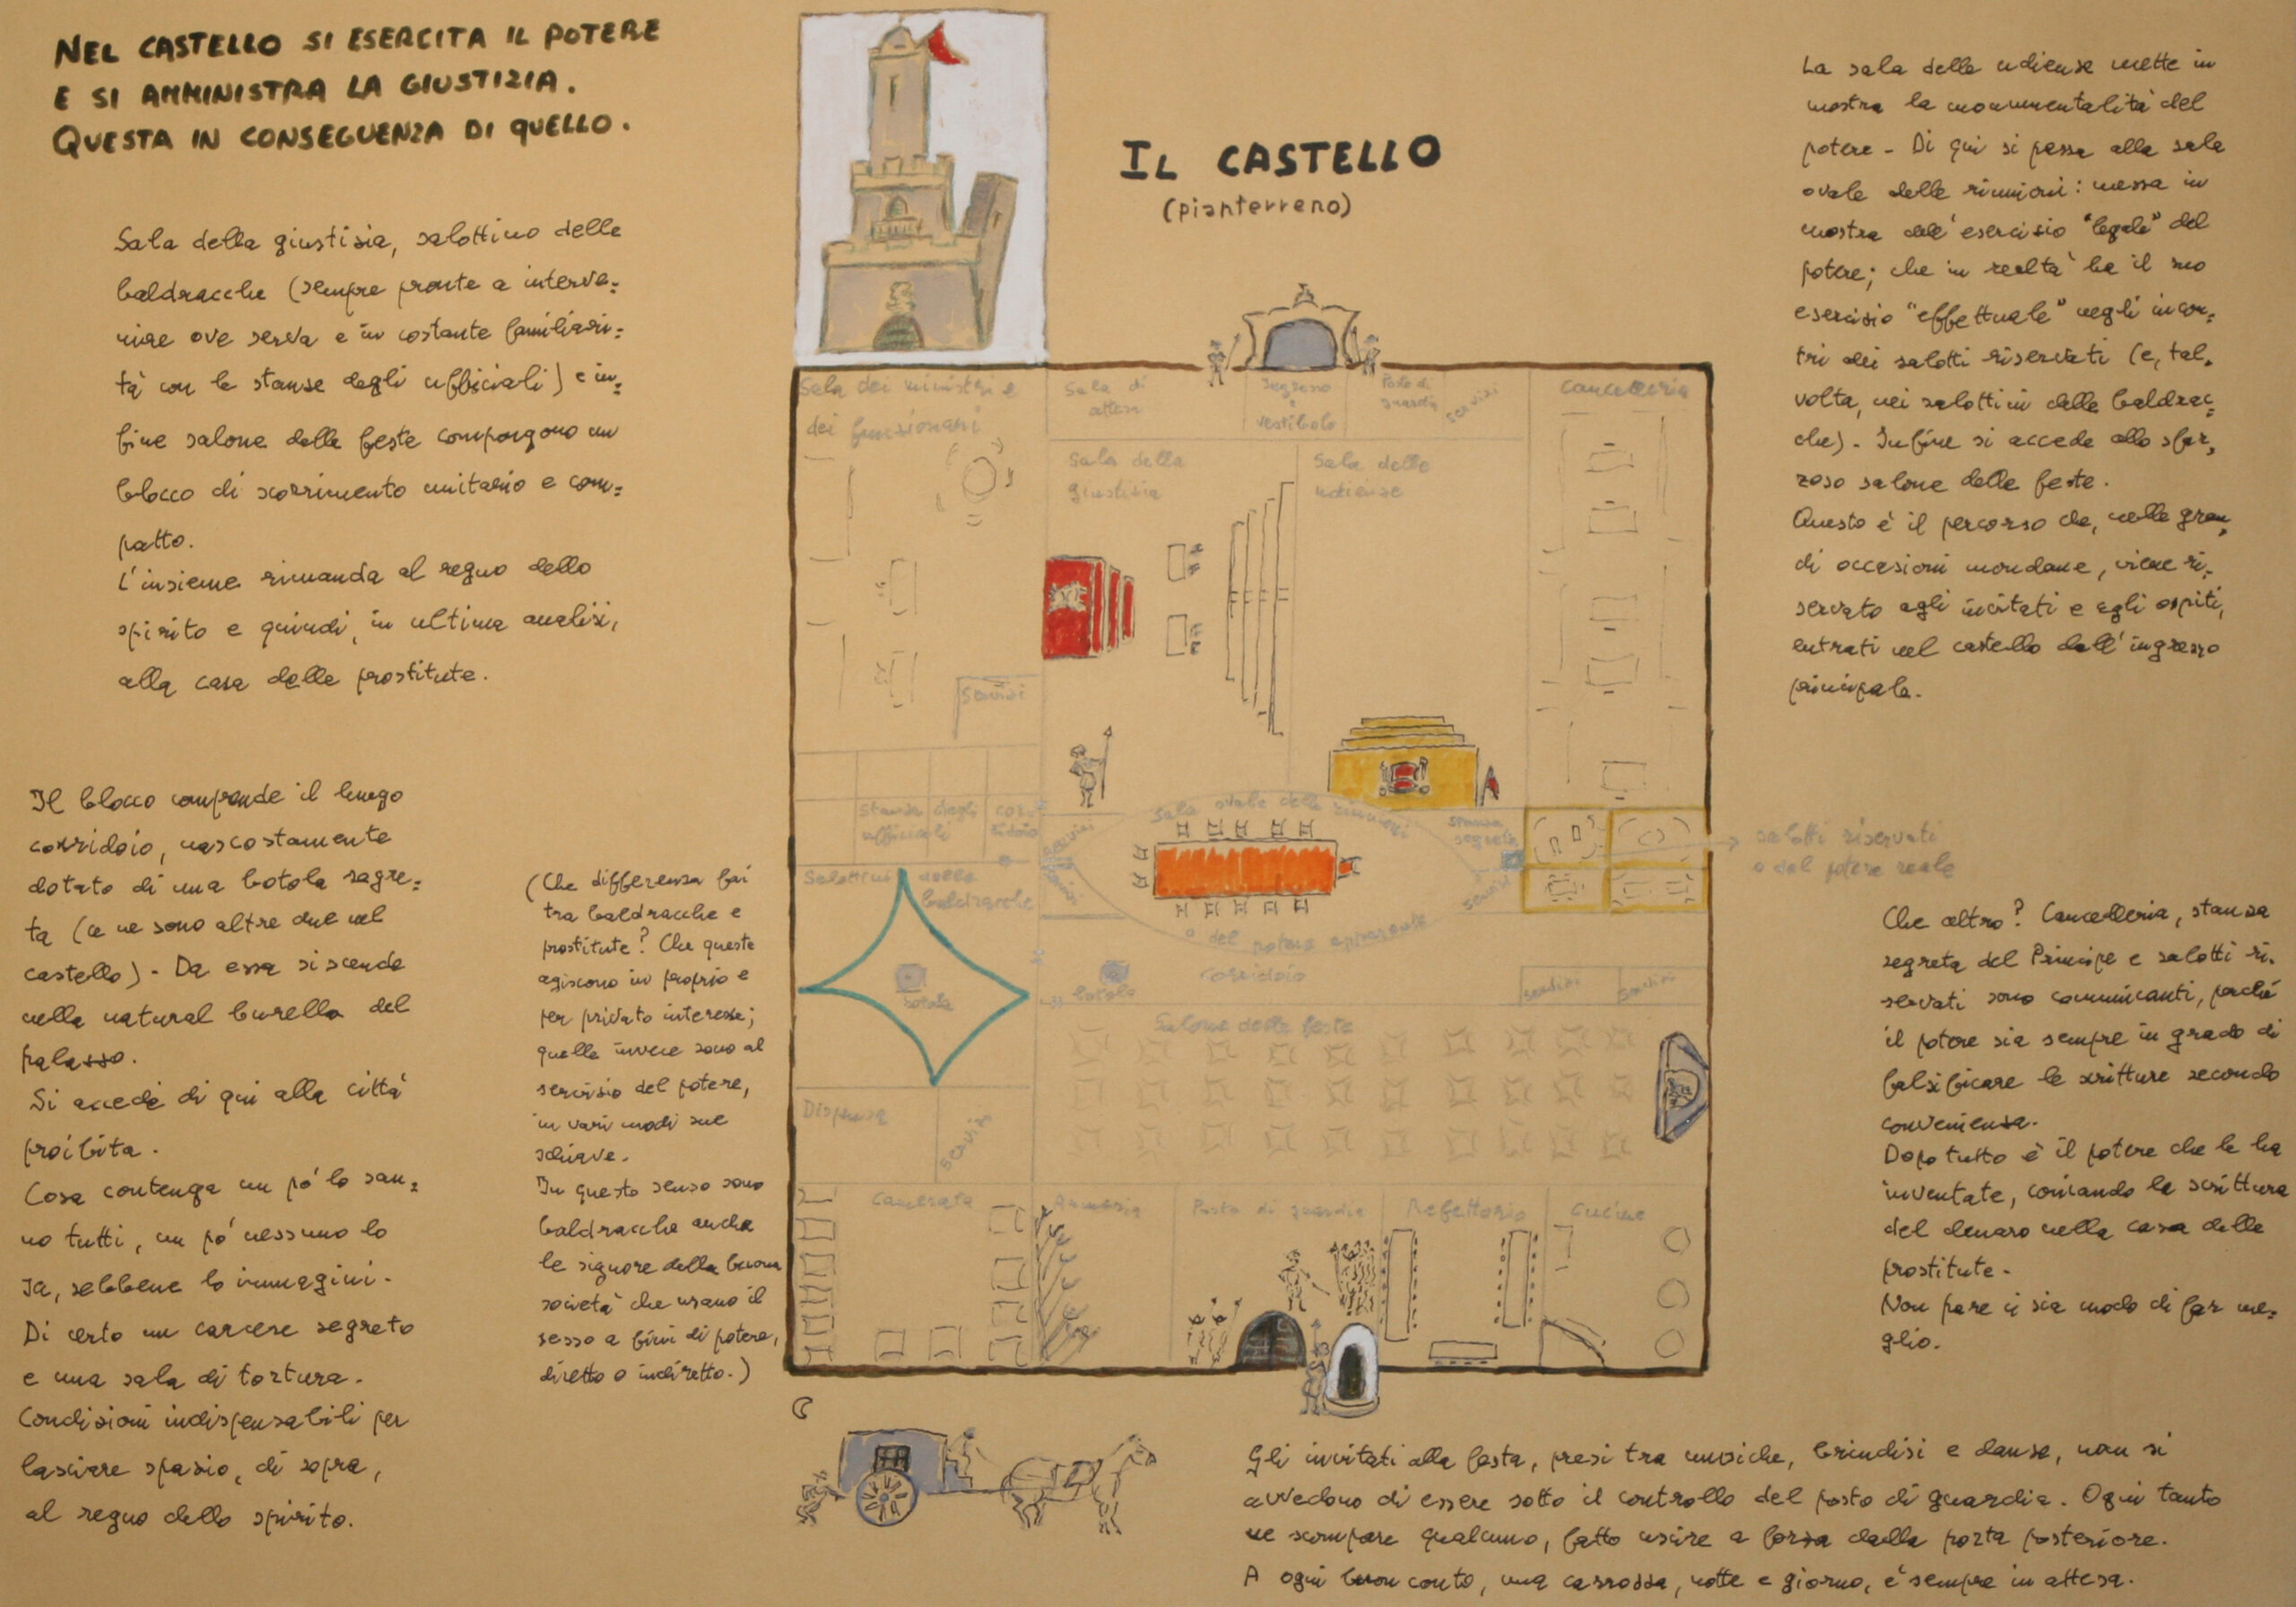 NEL CASTELLO SI ESERCITA IL POTERE
E SI AMMINISTRA LA GIUSTIZIA.
QUESTA IN CONSEGUENZA DI QUELLO.
Sala della giustizia, salottino delle
baldracche (sempre pronte a interve=
nire ove serva e in costante familiari=
tà con le stanze degli ufficiali) e in=
fine salone delle feste compongono un
blocco di scorrimento unitario e com=
patto.
L'insieme rimanda al regno dello
spirito e quindi, in ultima analisi,
alla casa delle prostitute.
Il blocco comprende il lungo
corridoio, nascostamente
dotato di una botola segre=
ta (ce ne sono altre due nel
castello). Da essa si scende
nella natural burella del
palazzo.
Si accede di qui alla città
proibita.
Cosa contenga un pò lo san=
no tutti, un pò nessuno lo
sa, sebbene lo immagini.
Di certo un carcere segreto
e una sala di tortura.
Condizioni indispensabili per
lasciare spazio, di sopra,
al regno dello spirito.
(Che differenza fai
tra baldracche e
prostitute? Che queste
agiscono in proprio e
per privato interesse;
quelle invece sono al
servizio del potere,
in vari modi sue
schiave.
In questo senso sono
baldracche anche
le signore della buona
società che usano il
sesso a fini di potere,
diretto o indiretto.)
IL CASTELLO
(pianterreno)
Sala dei ministri e
dei funzionari
Sala di
attesa
Ingresso
e
vestibolo
Posto di
guardia
servizi
Cancelleria
Sala della
giustizia
Sala delle
udienze
servizi
Stanze degli
ufficiali
cor=
ridoio
servizi
Sala ovale delle riunioni
o del potere apparente
stanza
segreta
servizi
salotti riservati
o del potere reale
Salottini delle
baldracche
botola
botola
corridoio
servizi
servizi
Salone delle feste
Dispensa
servizi
Camerata
Armeria
Posto di guardia
Refettorio
Cucine
La sala delle udienze mette in
mostra la monumentalità del
potere. Di qui si passa alla sala
ovale delle riunioni: messa in
mostra dell'esercizio "legale" del
potere; che in realtà ha il suo
esercizio "effettuale" negli incon=
tri dei salotti riservati (e, tal=
volta, nei salottini delle baldrac=
che). Infine si accede allo sfar=
zoso salone delle feste.
Questo è il percorso che, nelle gran=
di occasioni mondane, viene ri=
servato agli invitati e agli ospiti,
entrati nel castello dall'ingresso
principale.
Che altro? Cancelleria, stanza
segreta del Principe e salotti ri=
servati sono comunicanti, perché
il potere sia sempre in grado di
falsificare le scritture secondo
convenienza.
Dopo tutto è il potere che le ha
inventate, coniando la scrittura
del denaro nella casa delle
prostitute.
Non pare ci sia modo di far me=
glio.
Gli invitati alla festa, presi tra musiche, brindisi e danze, non si
avvedono di essere sotto il controllo del posto di guardia. Ogni tanto
ne scompare qualcuno, fatto uscire a forza dalla porta posteriore.
A ogni buon conto, una carrozza, notte e giorno, è sempre in attesa.